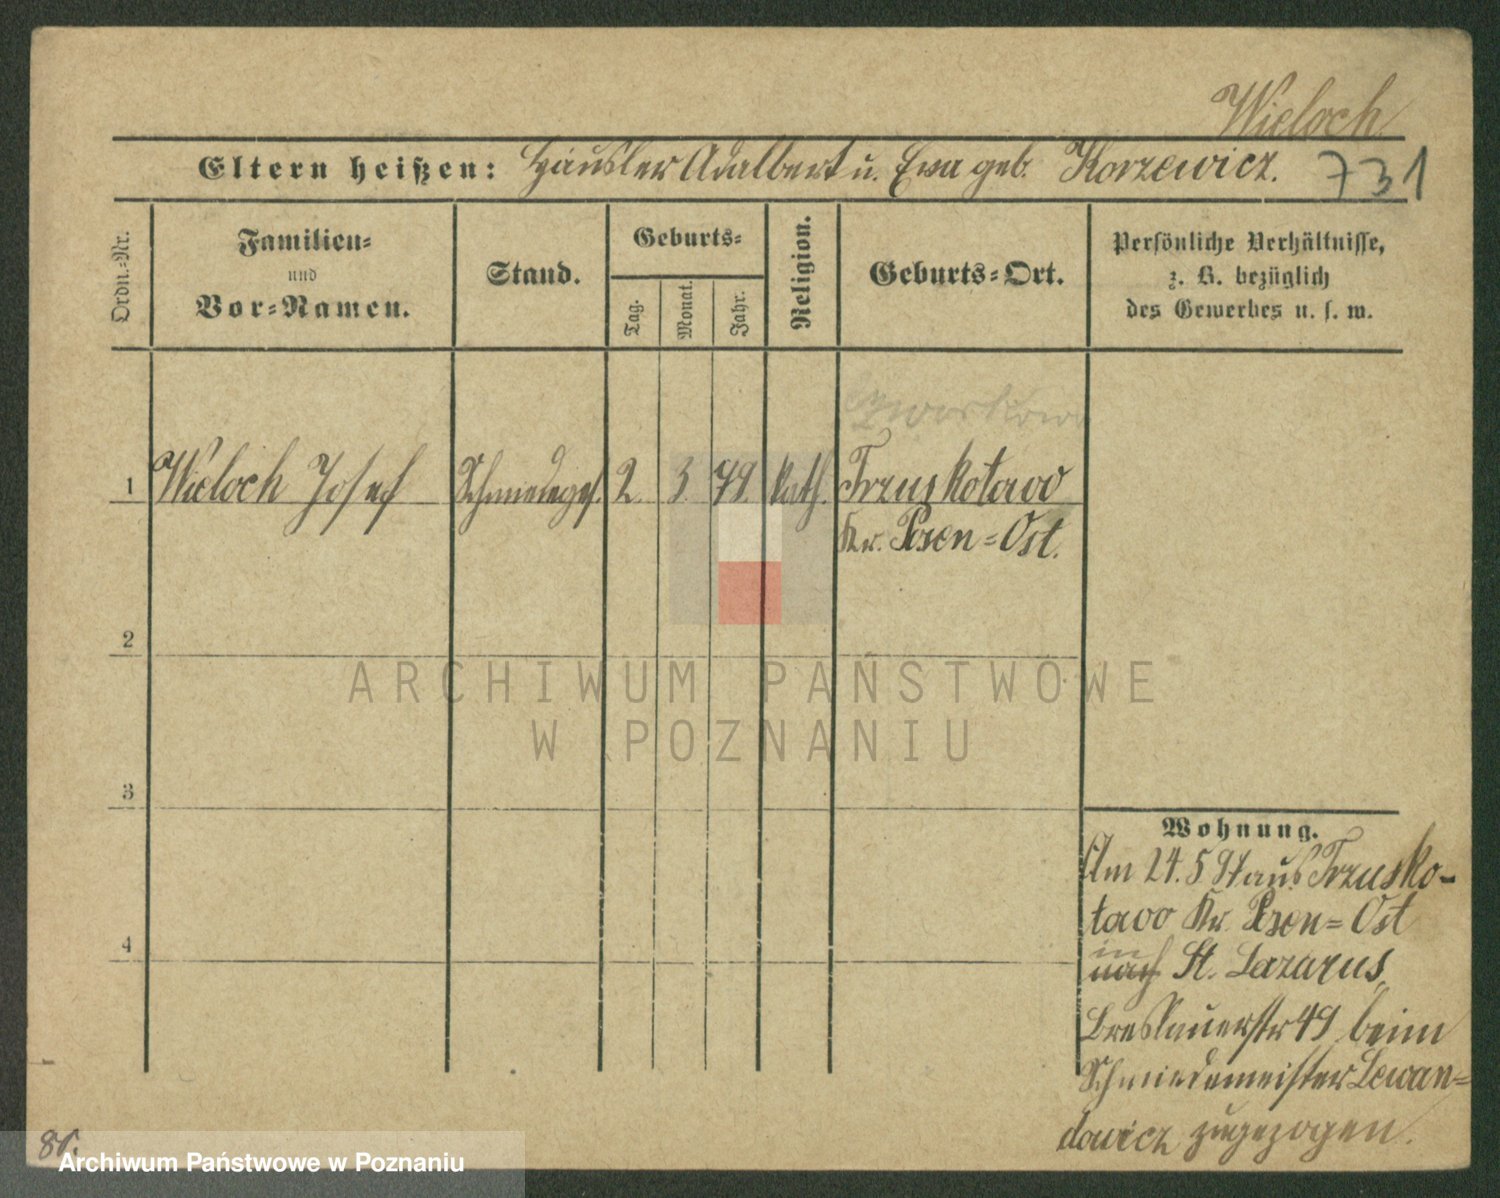 Wieloch
Eltern heißen: Häusler Adalbert u. Ewa geb. Korzewicz. 731
Ordn.-Nr.
Familien-
und
Vor-Namen.
Stand.
Geburts-
Tag.
Monat.
Jahr.
Religion.
Geburts-Ort.
Persönliche Verhältnisse,
z. B. bezüglich
des Gewerbes u. s. w.
1 Wieloch Josef Schmiedeges. 2. 3. 79. kath. Trzuskotowo
Kr. Posen=Ost.
2
3
4
Wohnung.
Am 24.5 97 aus Trzusko-
towo Kr. Posen=Ost
in
nach St. Lazarus,
Breslauerstr 49 beim
Schmiedemeister Lewan-
dowicz zugezogen.
ARCHIWUM PAŃSTWOWE
W POZNANIU
Archiwum Państwowe w Poznaniu